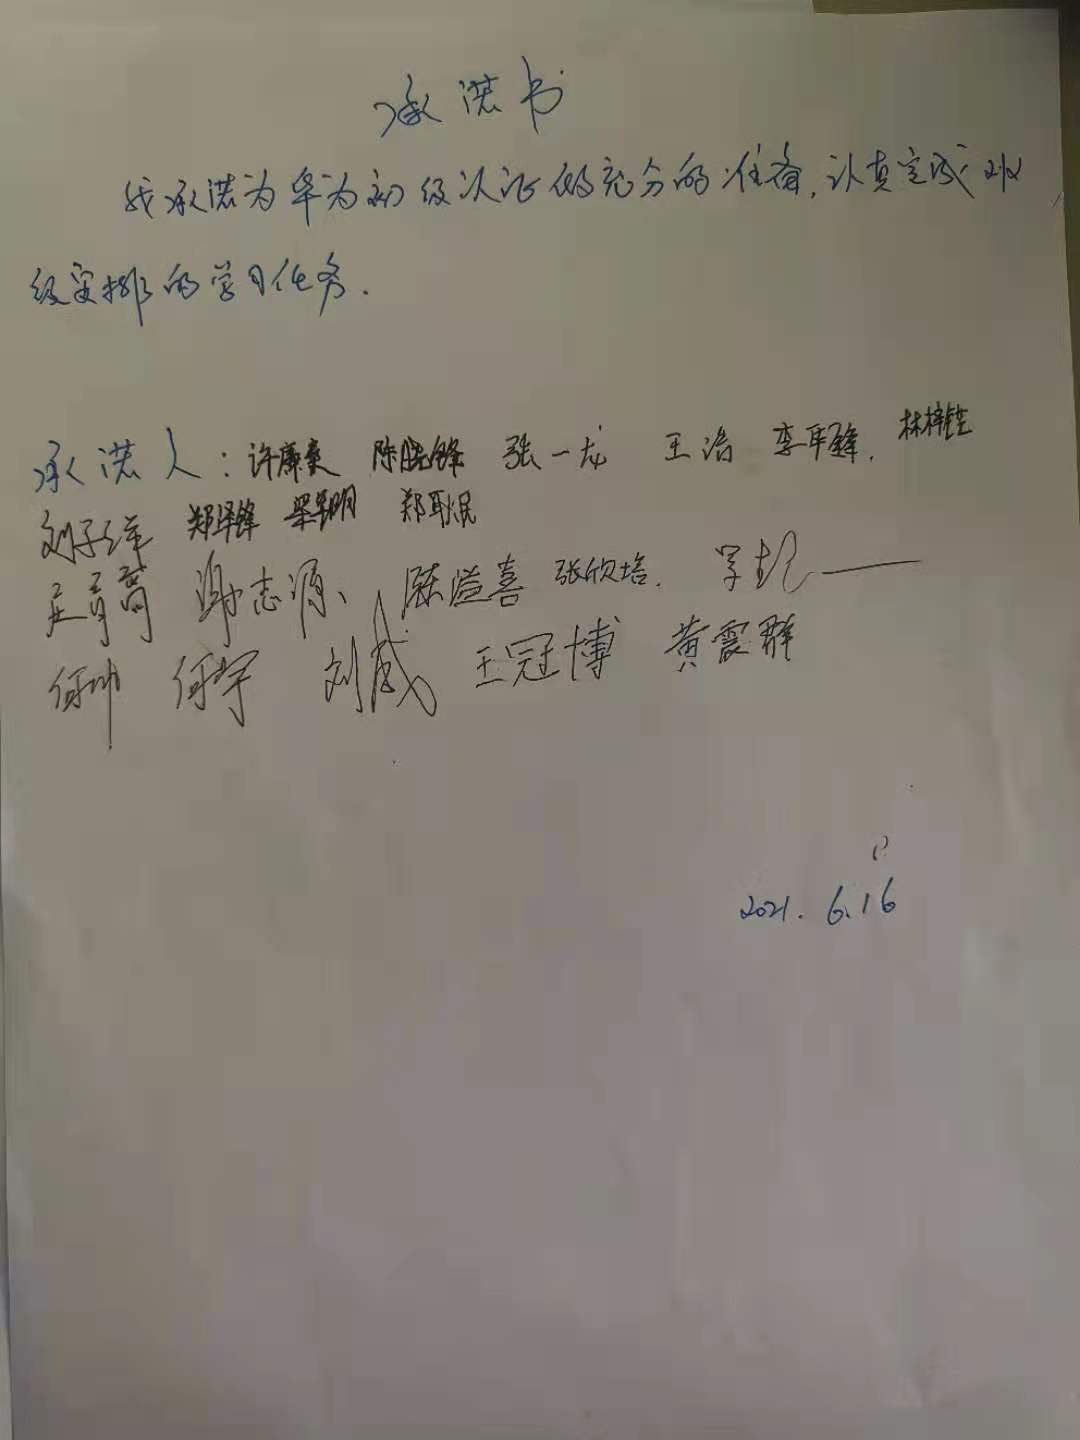 承诺书
我承诺为华为初级认证做充分的准备,认真完成班
级安排的学习任务.
承诺人: 许廉奕 陈晓锋 张一龙 王浩 李军锋. 林梓铨
刘子洋 郑泽锋 梁明 郑耿泯
谢志源、 陈溢喜 张欣培.
何帅 何宇 刘威 王冠博 黄震群
2021. 6.16